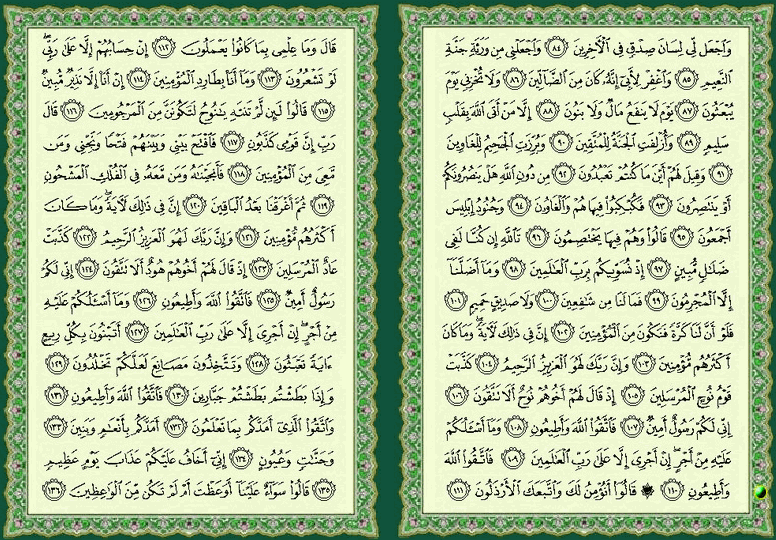 وَٱجْعَل لِّى لِسَانَ صِدْقٍ فِى ٱلْـَٔاخِرِينَ ٨٤ وَٱجْعَلْنِى مِن وَرَثَةِ جَنَّةِ
ٱلنَّعِيمِ ٨٥ وَٱغْفِرْ لِأَبِىٓ إِنَّهُۥ كَانَ مِنَ ٱلضَّآلِّينَ ٨٦ وَلَا تُخْزِنِى يَوْمَ
يُبْعَثُونَ ٨٧ يَوْمَ لَا يَنفَعُ مَالٌ وَلَا بَنُونَ ٨٨ إِلَّا مَنْ أَتَى ٱللَّهَ بِقَلْبٍ
سَلِيمٍ ٨٩ وَأُزْلِفَتِ ٱلْجَنَّةُ لِلْمُتَّقِينَ ٩٠ وَبُرِّزَتِ ٱلْجَحِيمُ لِلْغَاوِينَ
٩١ وَقِيلَ لَهُمْ أَيْنَ مَا كُنتُمْ تَعْبُدُونَ ٩٢ مِن دُونِ ٱللَّهِ هَلْ يَنصُرُونَكُمْ
أَوْ يَنتَصِرُونَ ٩٣ فَكُبْكِبُوا۟ فِيهَا هُمْ وَٱلْغَاوُۥنَ ٩٤ وَجُنُودُ إِبْلِيسَ
أَجْمَعُونَ ٩٥ قَالُوا۟ وَهُمْ فِيهَا يَخْتَصِمُونَ ٩٦ تَٱللَّهِ إِن كُنَّا لَفِى
ضَلَـٰلٍ مُّبِينٍ ٩٧ إِذْ نُسَوِّيكُم بِرَبِّ ٱلْعَـٰلَمِينَ ٩٨ وَمَآ أَضَلَّنَآ
إِلَّا ٱلْمُجْرِمُونَ ٩٩ فَمَا لَنَا مِن شَـٰفِعِينَ ١٠٠ وَلَا صَدِيقٍ حَمِيمٍ ١٠١
فَلَوْ أَنَّ لَنَا كَرَّةً فَنَكُونَ مِنَ ٱلْمُؤْمِنِينَ ١٠٢ إِنَّ فِى ذَٰلِكَ لَـَٔايَةً ۖ وَمَا كَانَ
أَكْثَرُهُم مُّؤْمِنِينَ ١٠٣ وَإِنَّ رَبَّكَ لَهُوَ ٱلْعَزِيزُ ٱلرَّحِيمُ ١٠٤ كَذَّبَتْ
قَوْمُ نُوحٍ ٱلْمُرْسَلِينَ ١٠٥ إِذْ قَالَ لَهُمْ أَخُوهُمْ نُوحٌ أَلَا تَتَّقُونَ ١٠٦
إِنِّى لَكُمْ رَسُولٌ أَمِينٌ ١٠٧ فَٱتَّقُوا۟ ٱللَّهَ وَأَطِيعُونِ ١٠٨ وَمَآ أَسْـَٔلُكُمْ
عَلَيْهِ مِنْ أَجْرٍ ۖ إِنْ أَجْرِىَ إِلَّا عَلَىٰ رَبِّ ٱلْعَـٰلَمِينَ ١٠٩ فَٱتَّقُوا۟ ٱللَّهَ
وَأَطِيعُونِ ١١٠ ۞ قَالُوٓا۟ أَنُؤْمِنُ لَكَ وَٱتَّبَعَكَ ٱلْأَرْذَلُونَ ١١١
قَالَ وَمَا عِلْمِى بِمَا كَانُوا۟ يَعْمَلُونَ ١١٢ إِنْ حِسَابُهُمْ إِلَّا عَلَىٰ رَبِّى ۖ
لَوْ تَشْعُرُونَ ١١٣ وَمَآ أَنَا۠ بِطَارِدِ ٱلْمُؤْمِنِينَ ١١٤ إِنْ أَنَا۠ إِلَّا نَذِيرٌ مُّبِينٌ
١١٥ قَالُوا۟ لَئِن لَّمْ تَنتَهِ يَـٰنُوحُ لَتَكُونَنَّ مِنَ ٱلْمَرْجُومِينَ ١١٦ قَالَ
رَبِّ إِنَّ قَوْمِى كَذَّبُونِ ١١٧ فَٱفْتَحْ بَيْنِى وَبَيْنَهُمْ فَتْحًا وَنَجِّنِى وَمَن
مَّعِىَ مِنَ ٱلْمُؤْمِنِينَ ١١٨ فَأَنجَيْنَـٰهُ وَمَن مَّعَهُۥ فِى ٱلْفُلْكِ ٱلْمَشْحُونِ
١١٩ ثُمَّ أَغْرَقْنَا بَعْدُ ٱلْبَاقِينَ ١٢٠ إِنَّ فِى ذَٰلِكَ لَـَٔايَةً ۖ وَمَا كَانَ
أَكْثَرُهُم مُّؤْمِنِينَ ١٢١ وَإِنَّ رَبَّكَ لَهُوَ ٱلْعَزِيزُ ٱلرَّحِيمُ ١٢٢ كَذَّبَتْ
عَادٌ ٱلْمُرْسَلِينَ ١٢٣ إِذْ قَالَ لَهُمْ أَخُوهُمْ هُودٌ أَلَا تَتَّقُونَ ١٢٤ إِنِّى لَكُمْ
رَسُولٌ أَمِينٌ ١٢٥ فَٱتَّقُوا۟ ٱللَّهَ وَأَطِيعُونِ ١٢٦ وَمَآ أَسْـَٔلُكُمْ عَلَيْهِ
مِنْ أَجْرٍ ۖ إِنْ أَجْرِىَ إِلَّا عَلَىٰ رَبِّ ٱلْعَـٰلَمِينَ ١٢٧ أَتَبْنُونَ بِكُلِّ رِيعٍ
ءَايَةً تَعْبَثُونَ ١٢٨ وَتَتَّخِذُونَ مَصَانِعَ لَعَلَّكُمْ تَخْلُدُونَ ١٢٩
وَإِذَا بَطَشْتُم بَطَشْتُمْ جَبَّارِينَ ١٣٠ فَٱتَّقُوا۟ ٱللَّهَ وَأَطِيعُونِ ١٣١
وَٱتَّقُوا۟ ٱلَّذِىٓ أَمَدَّكُم بِمَا تَعْلَمُونَ ١٣٢ أَمَدَّكُم بِأَنْعَـٰمٍ وَبَنِينَ ١٣٣
وَجَنَّـٰتٍ وَعُيُونٍ ١٣٤ إِنِّىٓ أَخَافُ عَلَيْكُمْ عَذَابَ يَوْمٍ عَظِيمٍ
١٣٥ قَالُوا۟ سَوَآءٌ عَلَيْنَآ أَوَعَظْتَ أَمْ لَمْ تَكُن مِّنَ ٱلْوَٰعِظِينَ ١٣٦